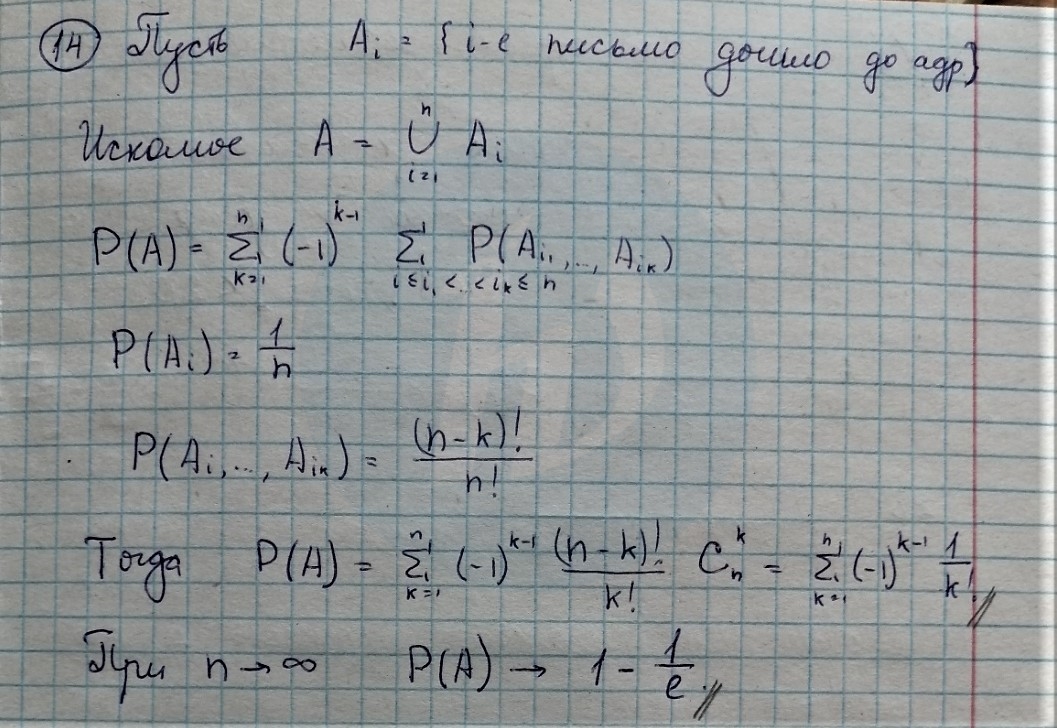 14 Пусть A_i = {i-е письмо дошло до адр}
Искомое A = ⋃_{i=1}^{n} A_i
P(A) = Σ_{k=1}^{n} (-1)^{k-1} Σ_{1≤i_1<..<i_k≤n} P(A_{i_1},..., A_{i_k})
P(A_i) = 1/n
P(A_{i_1},..., A_{i_k}) = (n-k)!/n!
Тогда P(A) = Σ_{k=1}^{n} (-1)^{k-1} (n-k)!/k! C_n^k = Σ_{k=1}^{n} (-1)^{k-1} 1/k! //
При n → ∞ P(A) → 1 - 1/e. //